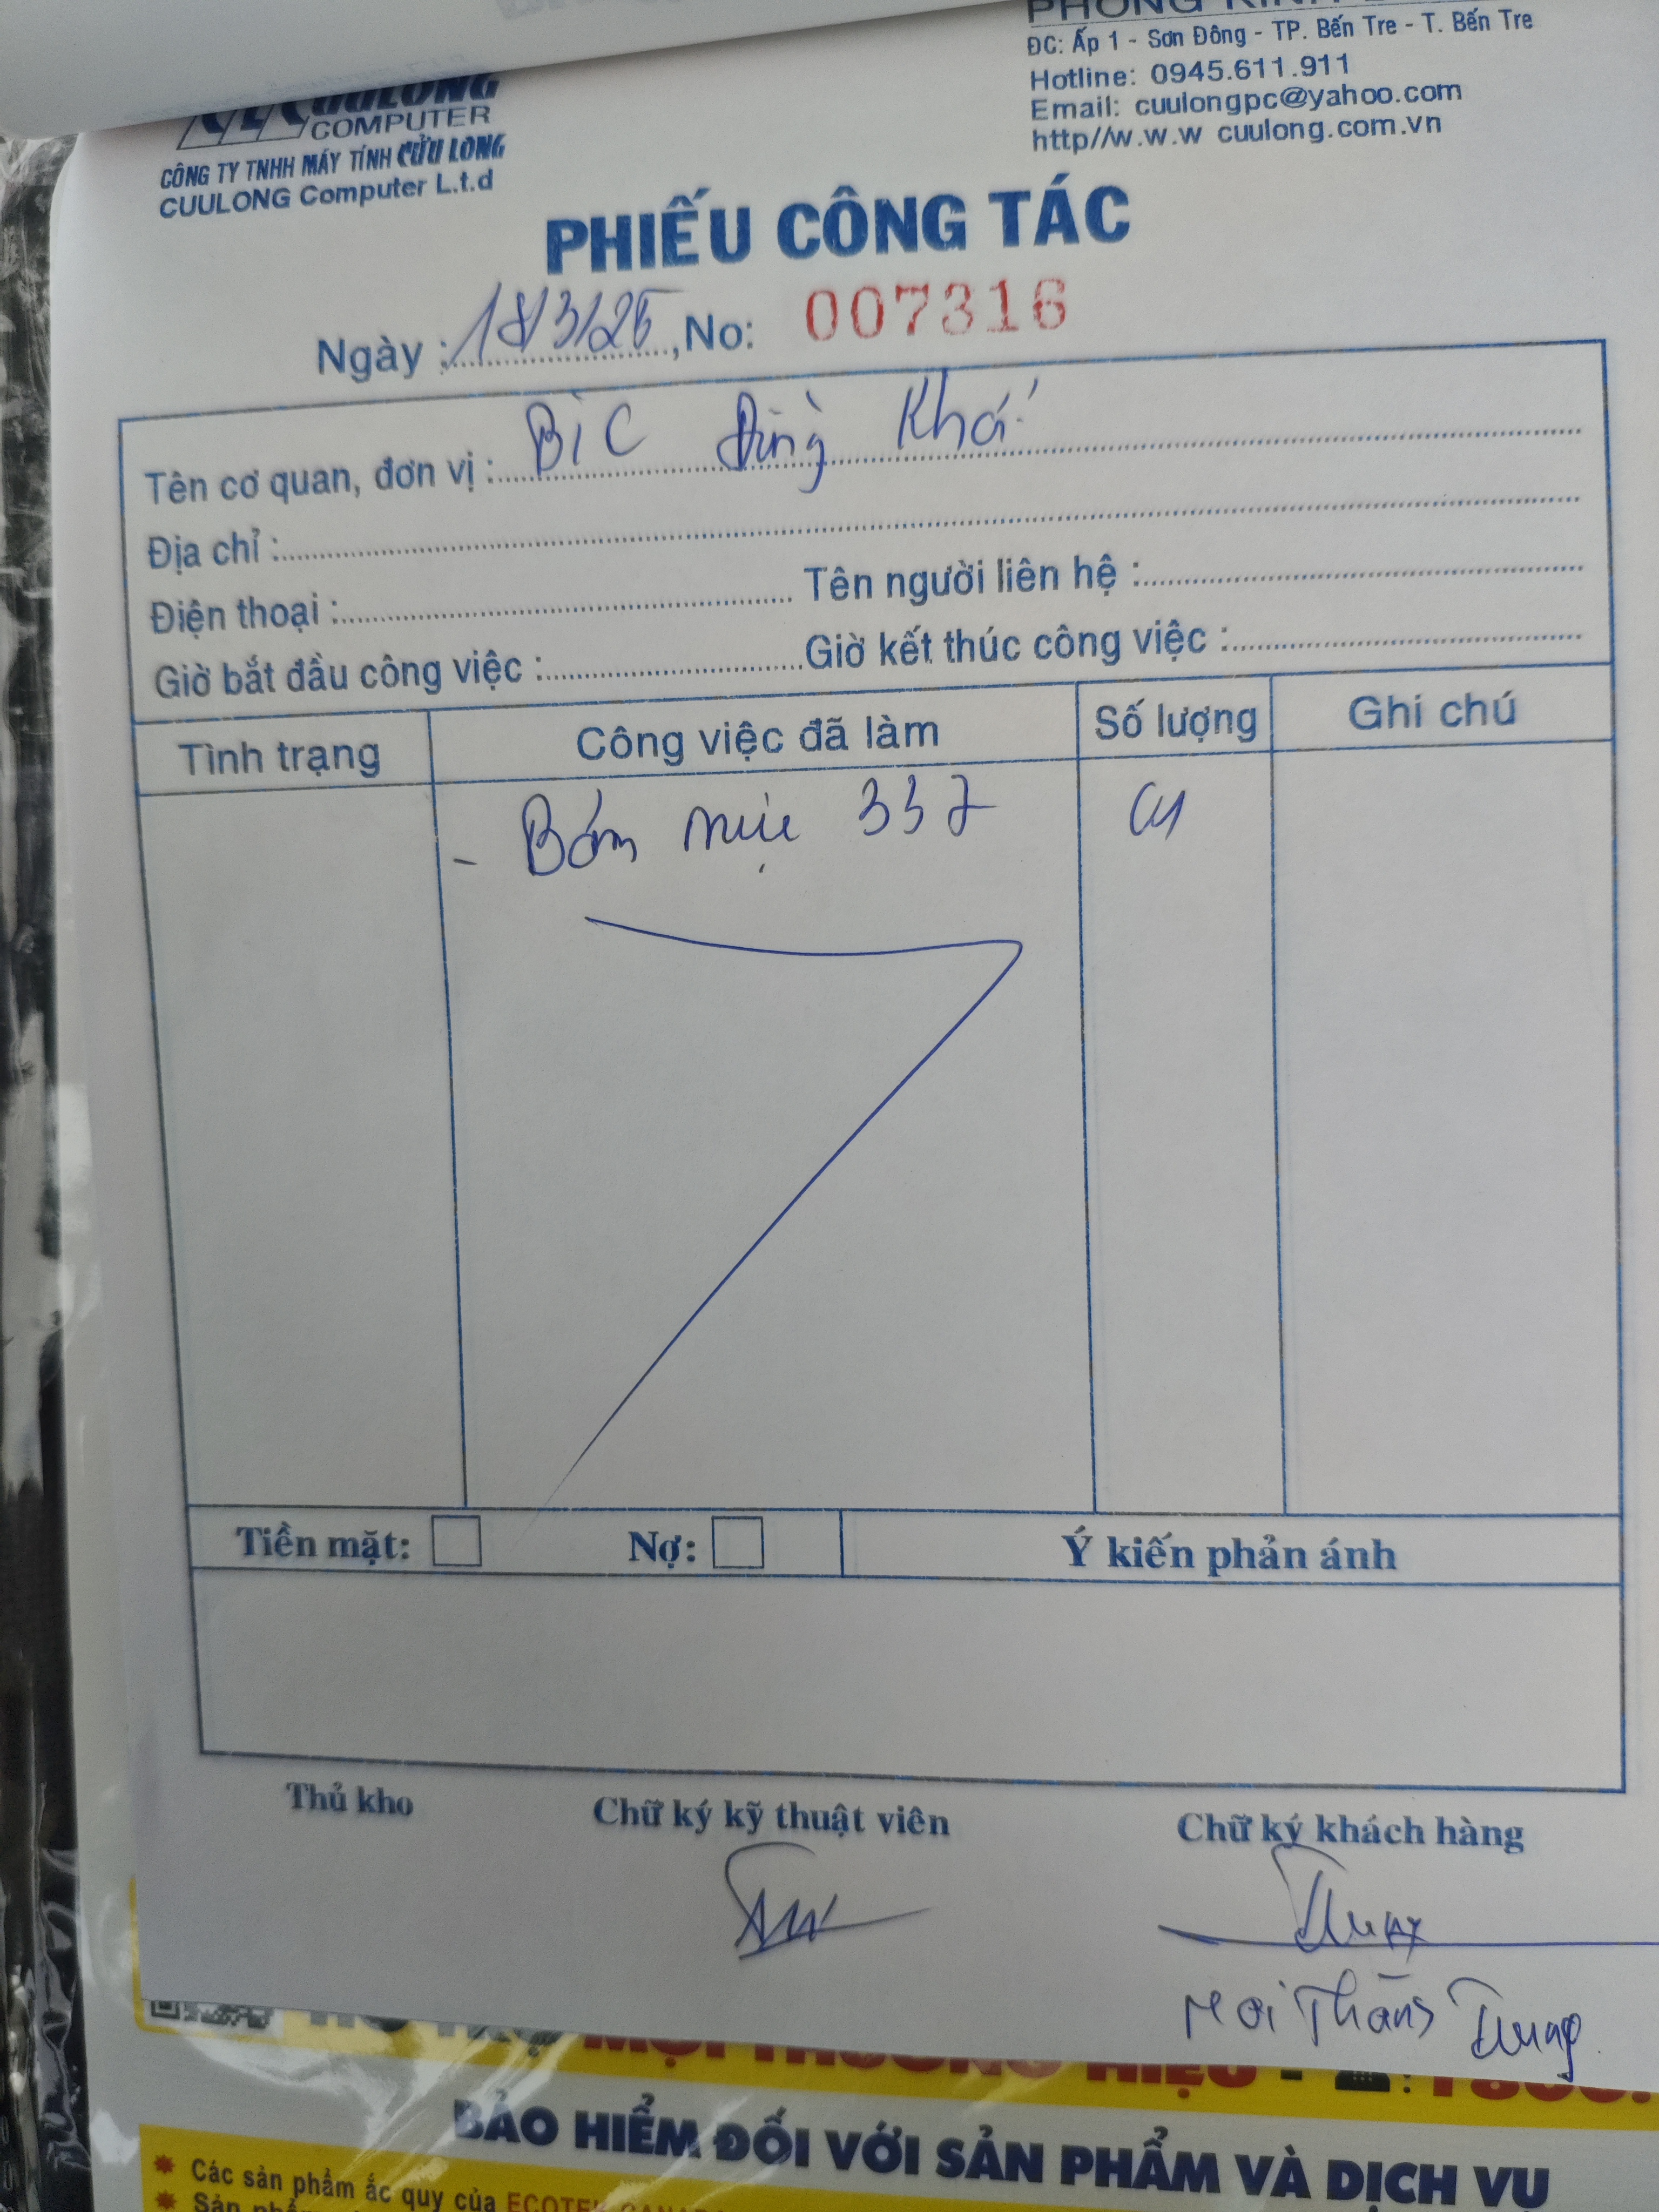 PHÒNG KINH
ĐC: Ấp 1 - Sơn Đông - TP. Bến Tre - T. Bến Tre
Hotline: 0945.611.911
Email: cuulongpc@yahoo.com
http//w.w.w cuulong.com.vn
CUULONG
COMPUTER
CÔNG TY TNHH MÁY TÍNH CỬU LONG
CUULONG Computer L.t.d
PHIẾU CÔNG TÁC
Ngày : 18/3/25, No: 007316
Tên cơ quan, đơn vị : BIC Đồng Khá
Địa chỉ :
Điện thoại : Tên người liên hệ :
Giờ bắt đầu công việc : Giờ kết thúc công việc :
Tình trạng Công việc đã làm Số lượng Ghi chú
- Bơm mực 337 01
Tiền mặt: Nợ: Ý kiến phản ánh
Thủ kho Chữ ký kỹ thuật viên Chữ ký khách hàng
Thắng Trung
HỖ TRỢ MỌI THƯƠNG HIỆU - : 1800.
BẢO HIỂM ĐỐI VỚI SẢN PHẨM VÀ DỊCH VỤ
Các sản phẩm ắc quy của